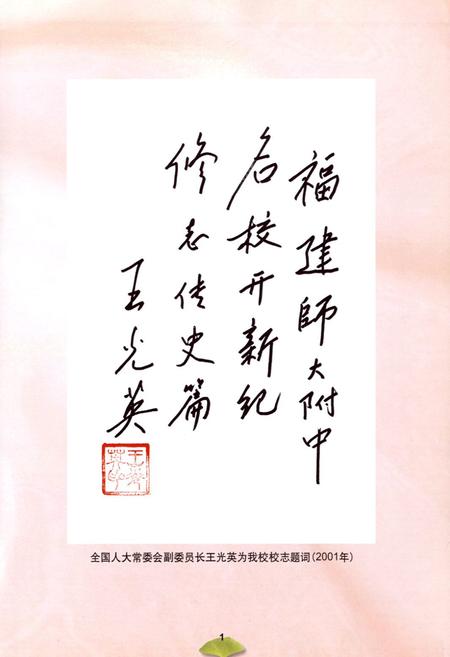 福建師大附中
名校开新纪
修志传史篇
王光英
全国人大常委会副委员长王光英为我校校志题词(2001年)
1